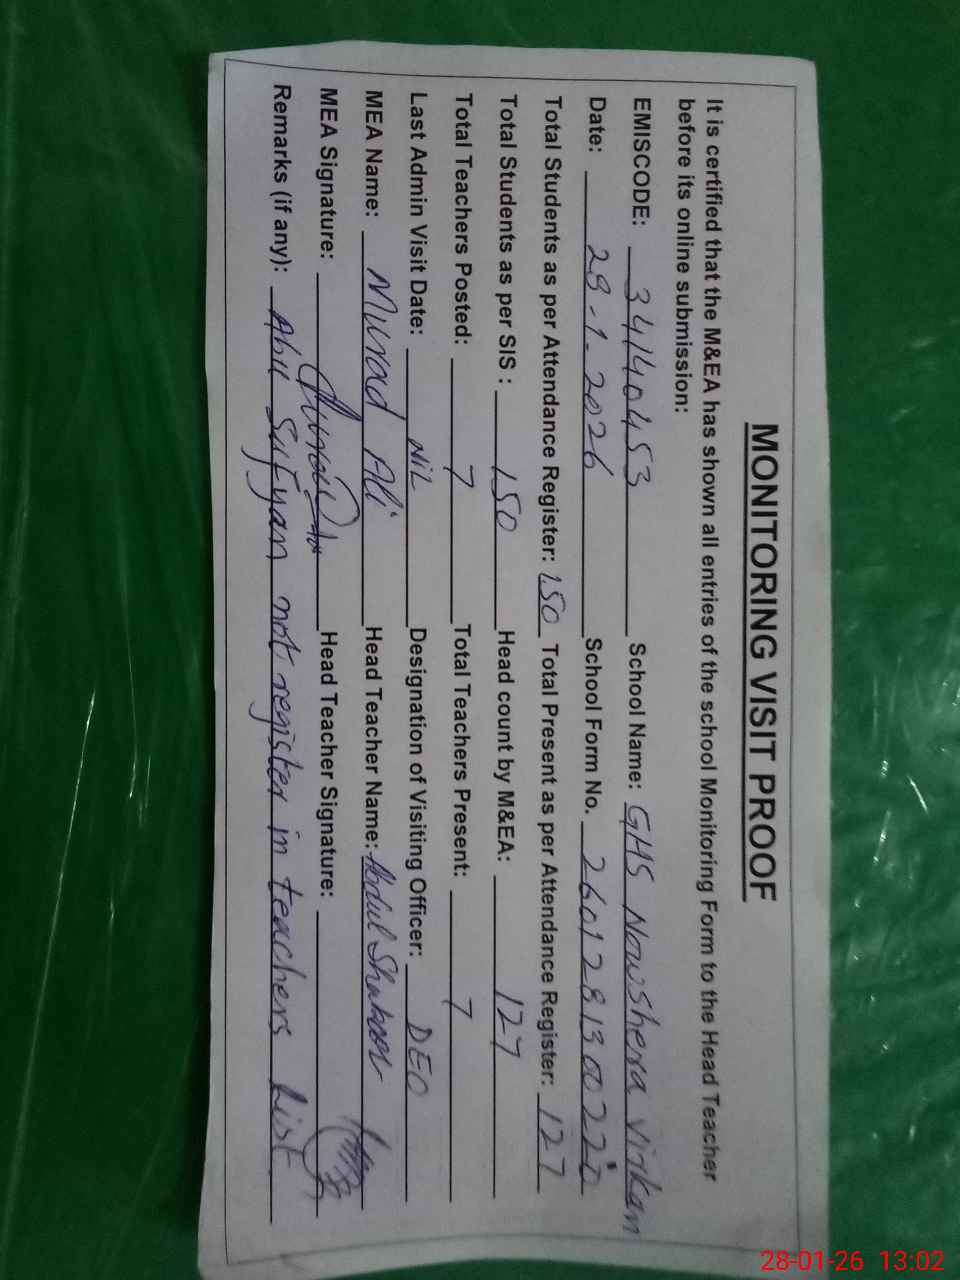 MONITORING VISIT PROOF
It is certified that the M&EA has shown all entries of the school Monitoring Form to the Head Teacher
before its online submission:
EMISCODE: 34140453 School Name: GHS Nowshera Virkan
Date: 28-1-2026 School Form No. 2601281300220
Total Students as per Attendance Register: 150 Total Present as per Attendance Register: 127
Total Students as per SIS : 150 Head count by M&EA: 127
Total Teachers Posted: 7 Total Teachers Present: 7
Last Admin Visit Date: NiL Designation of Visiting Officer: DEO
MEA Name: Murad Ali Head Teacher Name: Abdul Shakoor
MEA Signature: Head Teacher Signature:
Remarks (if any): Abu Sufyam not register in teachers List
28-01-26 13:02